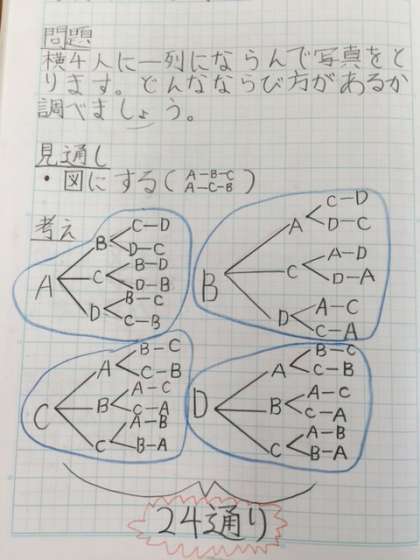 問題
横4人に一列にならんで写真をと
ります。どんなならび方があるか
調べましょう。
見通し
・図にする(A-B-C
A-C-B)
考え
A
B
C-D
D-C
C
B-D
D-B
D
B-C
C-B
B
A
C-D
D-C
C
A-D
D-A
D
A-C
C-A
C
A
B-C
C-B
B
A-C
C-A
C
A-B
B-A
D
A
B-C
C-B
B
A-C
C-A
C
A-B
B-A
24通り